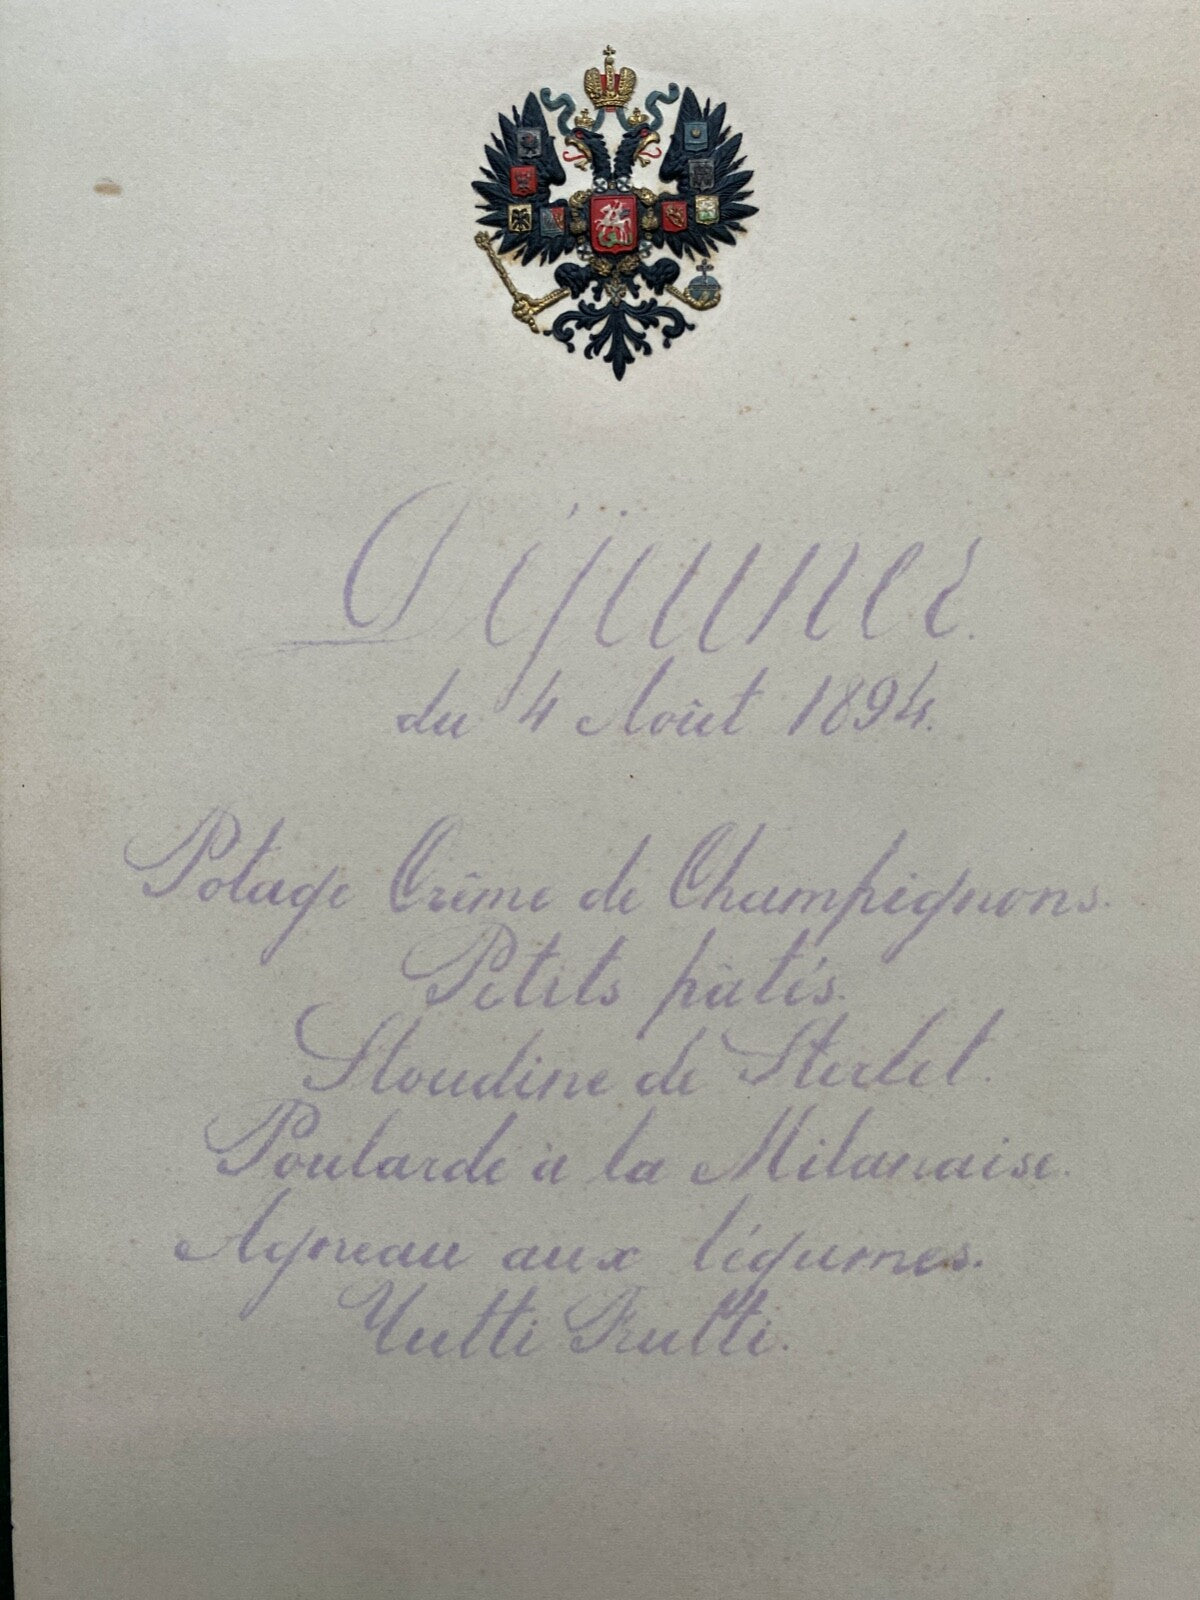 Déjuner
du 4 Août 1894.
Potage Crême de Champignons.
Petits pâtés.
Stoudine de Sterlet.
Poularde à la Milanaise.
Agneau aux légumes.
Tutti Frutti.